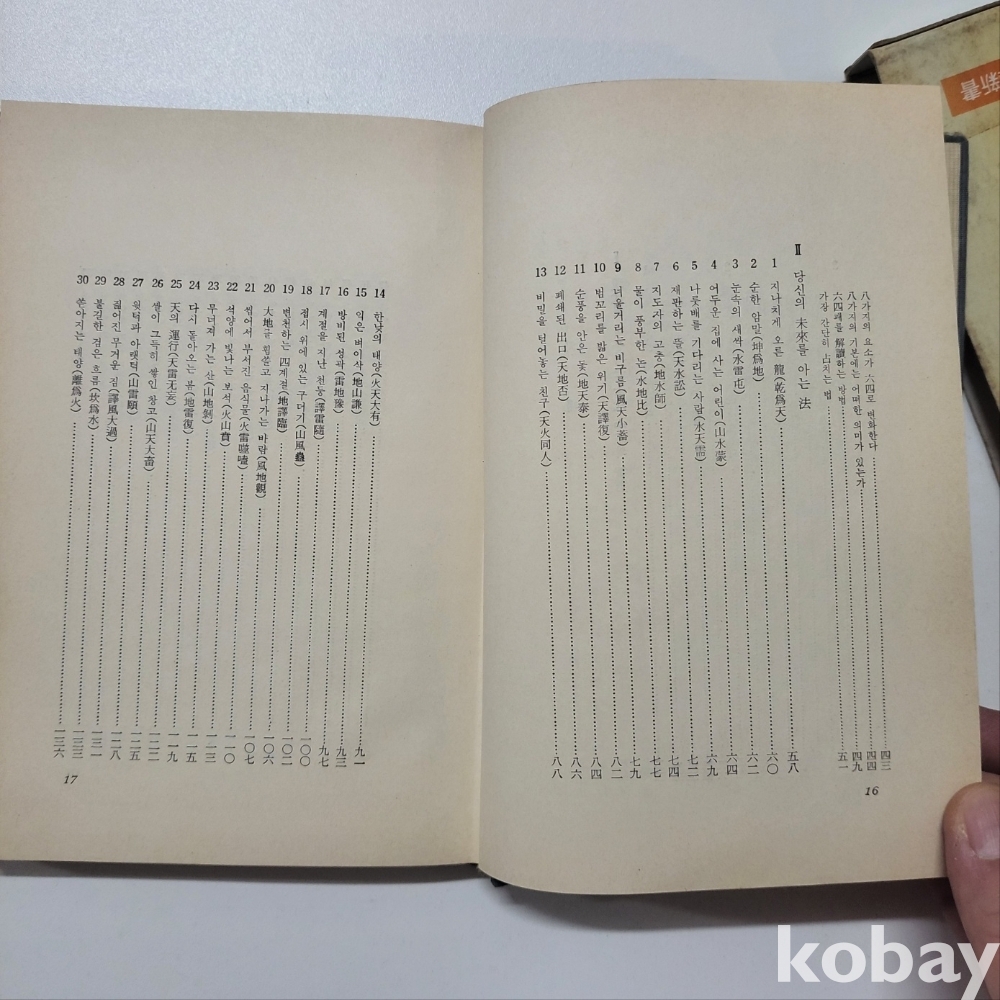 八가지의 요소가 六四로 변화한다 四三
八가지의 기본에는 어떠한 의미가 있는가 四四
六四괘를 解讀하는 방법 四九
가장 간단히 占치는 법 五一
Ⅱ 당신의 未來를 아는 法 五八
1 지나치게 오른 龍(乾爲天) 六〇
2 순한 암말(坤爲地) 六二
3 눈속의 새싹(水雷屯) 六四
4 어두운 집에 사는 어린이(山水蒙) 六九
5 나룻배를 기다리는 사람(水天需) 七二
6 재판하는 뜰(天水訟) 七四
7 지도자의 고충(地水師) 七七
8 물이 풍부한 논(水地比) 七九
9 너울거리는 비구름(風天小畜) 八二
10 범꼬리를 밟은 위기(天澤復) 八四
11 순풍을 안은 돛(地天泰) 八六
12 폐쇄된 出口(天地否) 八八
13 비밀을 털어놓는 친구(天火同人)
16
14 한낮의 태양(火天大有)
15 익은 벼이삭(地山謙) 九一
16 방비된 성곽(雷地豫) 九三
17 계절을 지난 천둥(譯雷隨) 九七
18 접시 위에 있는 구더기(山風蠱) 一〇〇
19 변천하는 四계절(地譯臨) 一〇二
20 大地를 휩쓸고 지나가는 바람(風地觀) 一〇六
21 씹어서 부서진 음식물(火雷噬嗑) 一〇七
22 석양에 빛나는 보석(火山賁) 一一〇
23 무너져 가는 산(山地剝) 一一三
24 다시 돌아오는 봄(地雷復) 一一五
25 天의 運行(天雷无妄) 一一九
26 쌀이 그득히 쌓인 창고(山天大畜) 一二二
27 윗턱과 아랫턱(山雷頤) 一二五
28 짊어진 무거운 짐(譯風大過) 一二八
29 불길한 검은 흐름(坎爲水) 一三一
30 쏟아지는 태양(離爲火) 一三三
一三六
17
新書
kobay